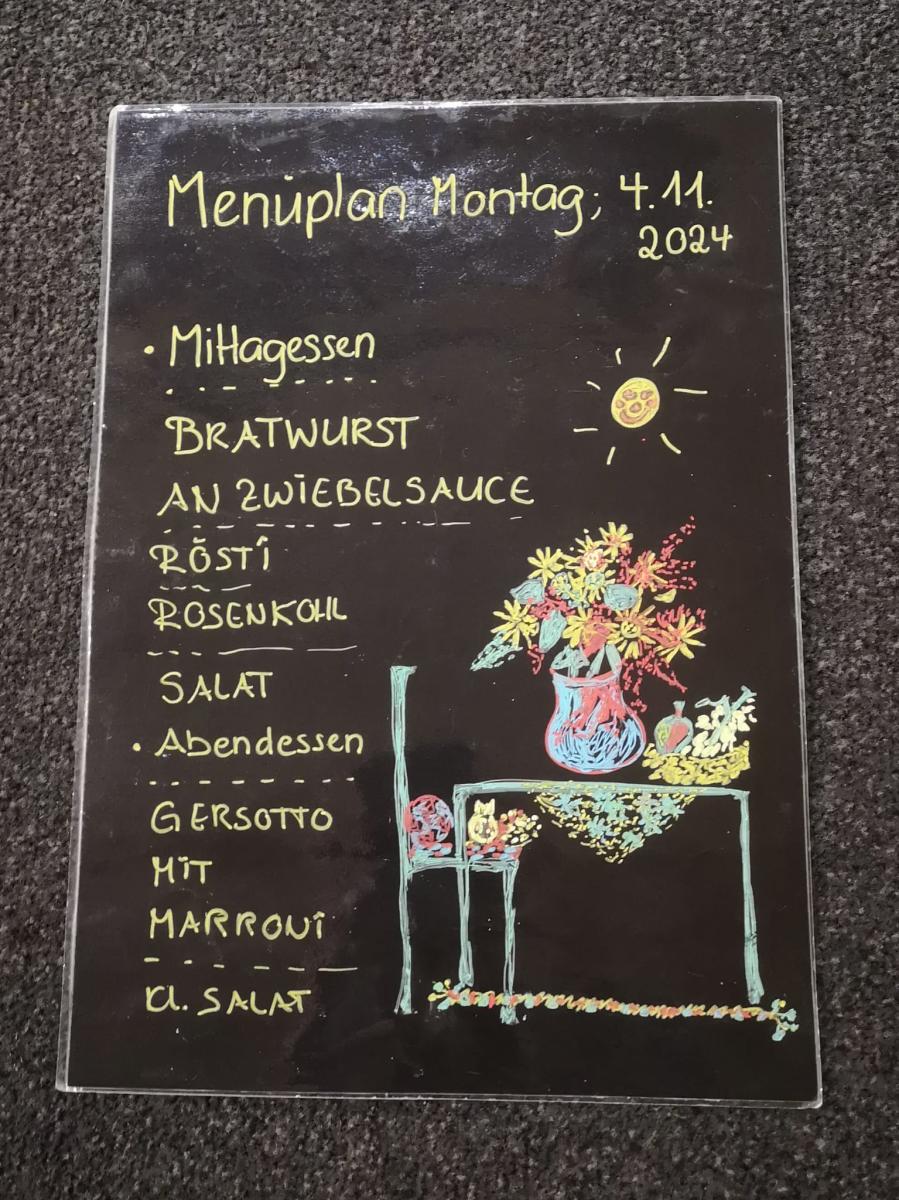 Menüplan Montag; 4.11.
2024
• Mittagessen
BRATWURST
AN ZWIEBELSAUCE
RÖSTI
ROSENKOHL
SALAT
• Abendessen
GERSOTTO
MIT
MARRONI
Kl. SALAT